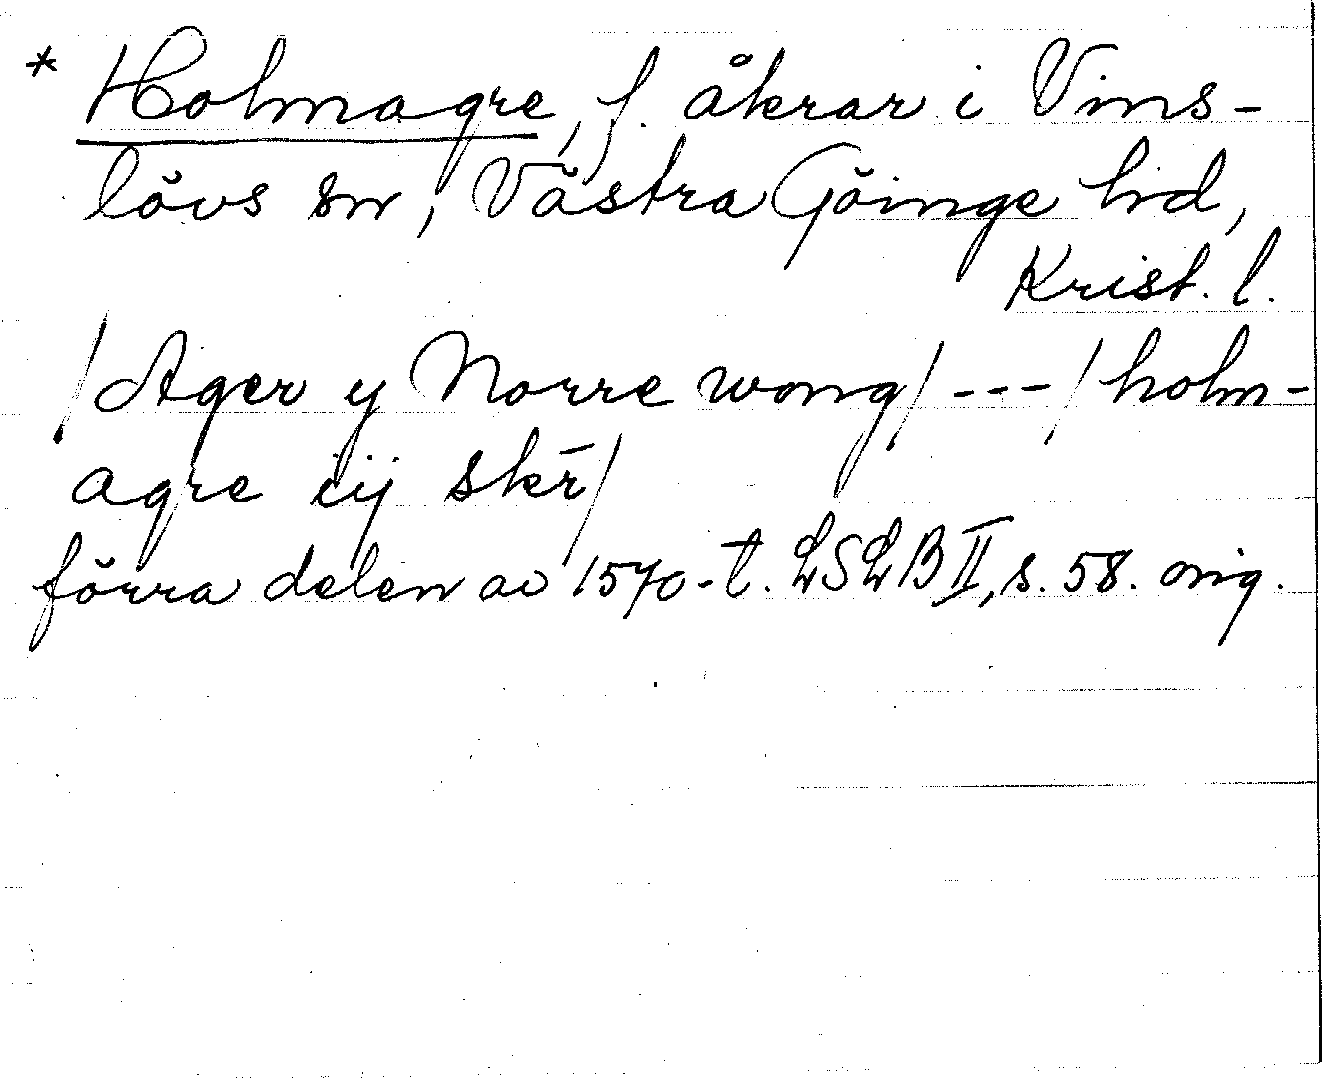 * Holmagre, f. åkrar i Vins-
lövs sn, Västra Göinge hd,
Krist. l.
/Ager y Norre wong/ --- /holm-
agre iij skr̄/
förra delen av 1570-t. LSLB II, s. 58. orig.